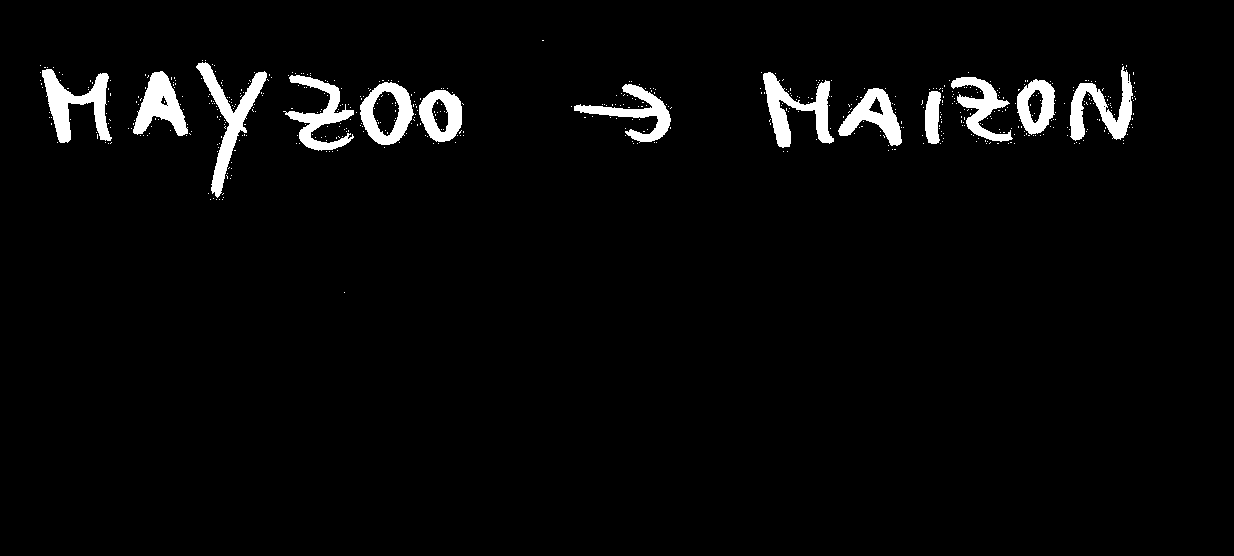 MAYZOO → MAIZON